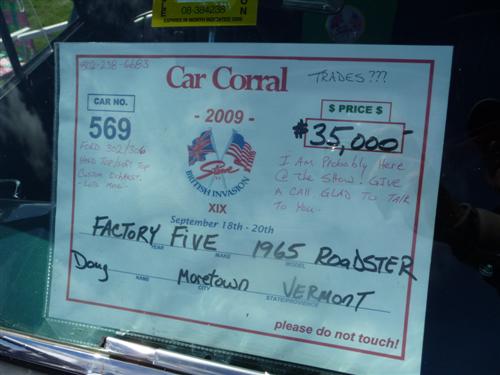 08-384238
802-238-6683
Car Corral
TRADES???
CAR NO.
569
- 2009 -
$ PRICE $
$35,000-
FORD 302/306
HARD TOP/SOFT TOP
CUSTOM EXHAUST.
- LOTS MORE -
Stowe
BRITISH INVASION
XIX
I AM PROBABLY HERE
@ THE SHOW! GIVE
A CALL. GLAD TO TALK
TO YOU..
September 18th - 20th
FACTORY FIVE 1965 ROADSTER
YEAR MAKE MODEL
Doug Moretown VERMONT
NAME CITY STATE/PROVINCE
please do not touch!